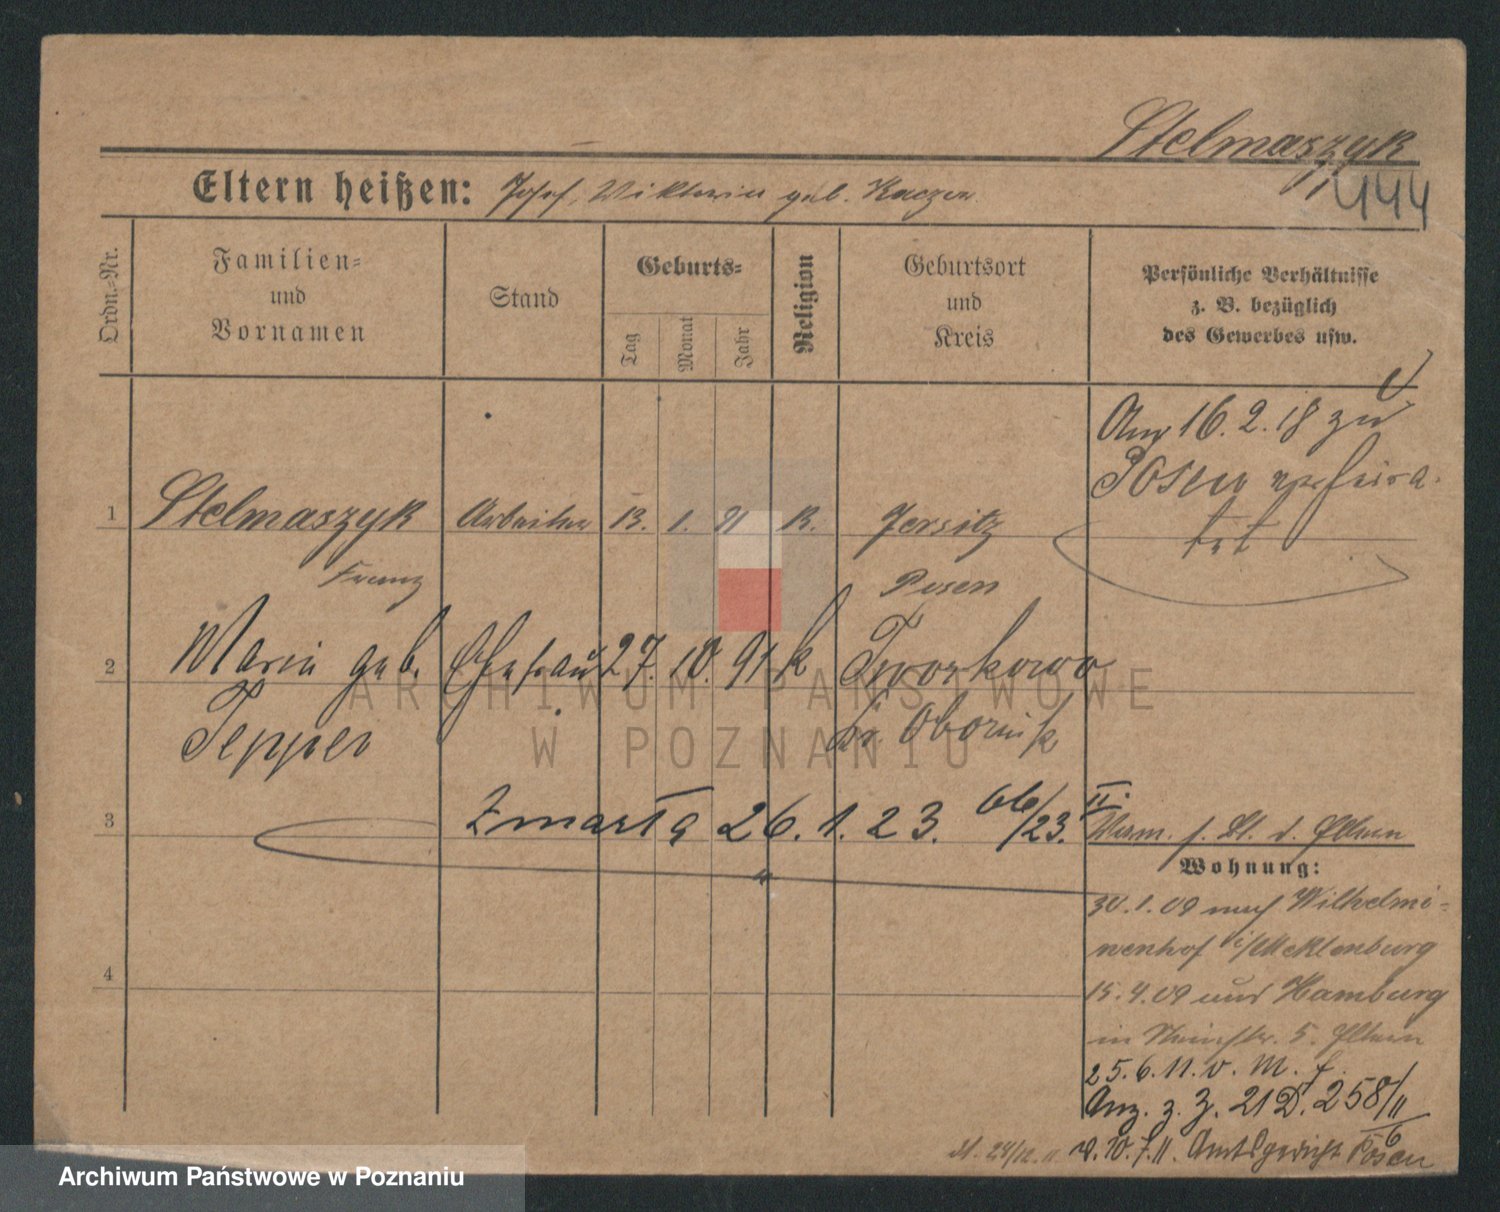 Stelmaszyk
Eltern heißen: Josef, Wiktoria geb. Kaczor
444
Ordn.-Nr.
Familien-
und
Vornamen
Stand
Geburts-
Tag
Monat
Jahr
Religion
Geburtsort
und
Kreis
Persönliche Verhältnisse
z. B. bezüglich
des Gewerbes usw.
Am 16.2.18 zu
Posen verheira-
tet
1 Stelmaszyk Arbeiter 13. 1. 91 K. Jersitz
Franz Posen
2 Maria geb. Ehefrau 27. 10. 91 k Tworkowo
Tepper Kr. Obornik
3 Zmarła 26. 1. 23. 66/23. II.
d. Eltern
Wohnung:
30.1.09 nach Wilhelmi-
nenhof i/Mecklenburg
15.4.09 und Hamburg
in 5. Eltern
25.6.11. v. M. f.
Anz. z. Z. 21 D. 258/11
6
v. 10.7.11. Amtsgericht Posen
4
ARCHIWUM PAŃSTWOWE
W POZNANIU
Archiwum Państwowe w Poznaniu